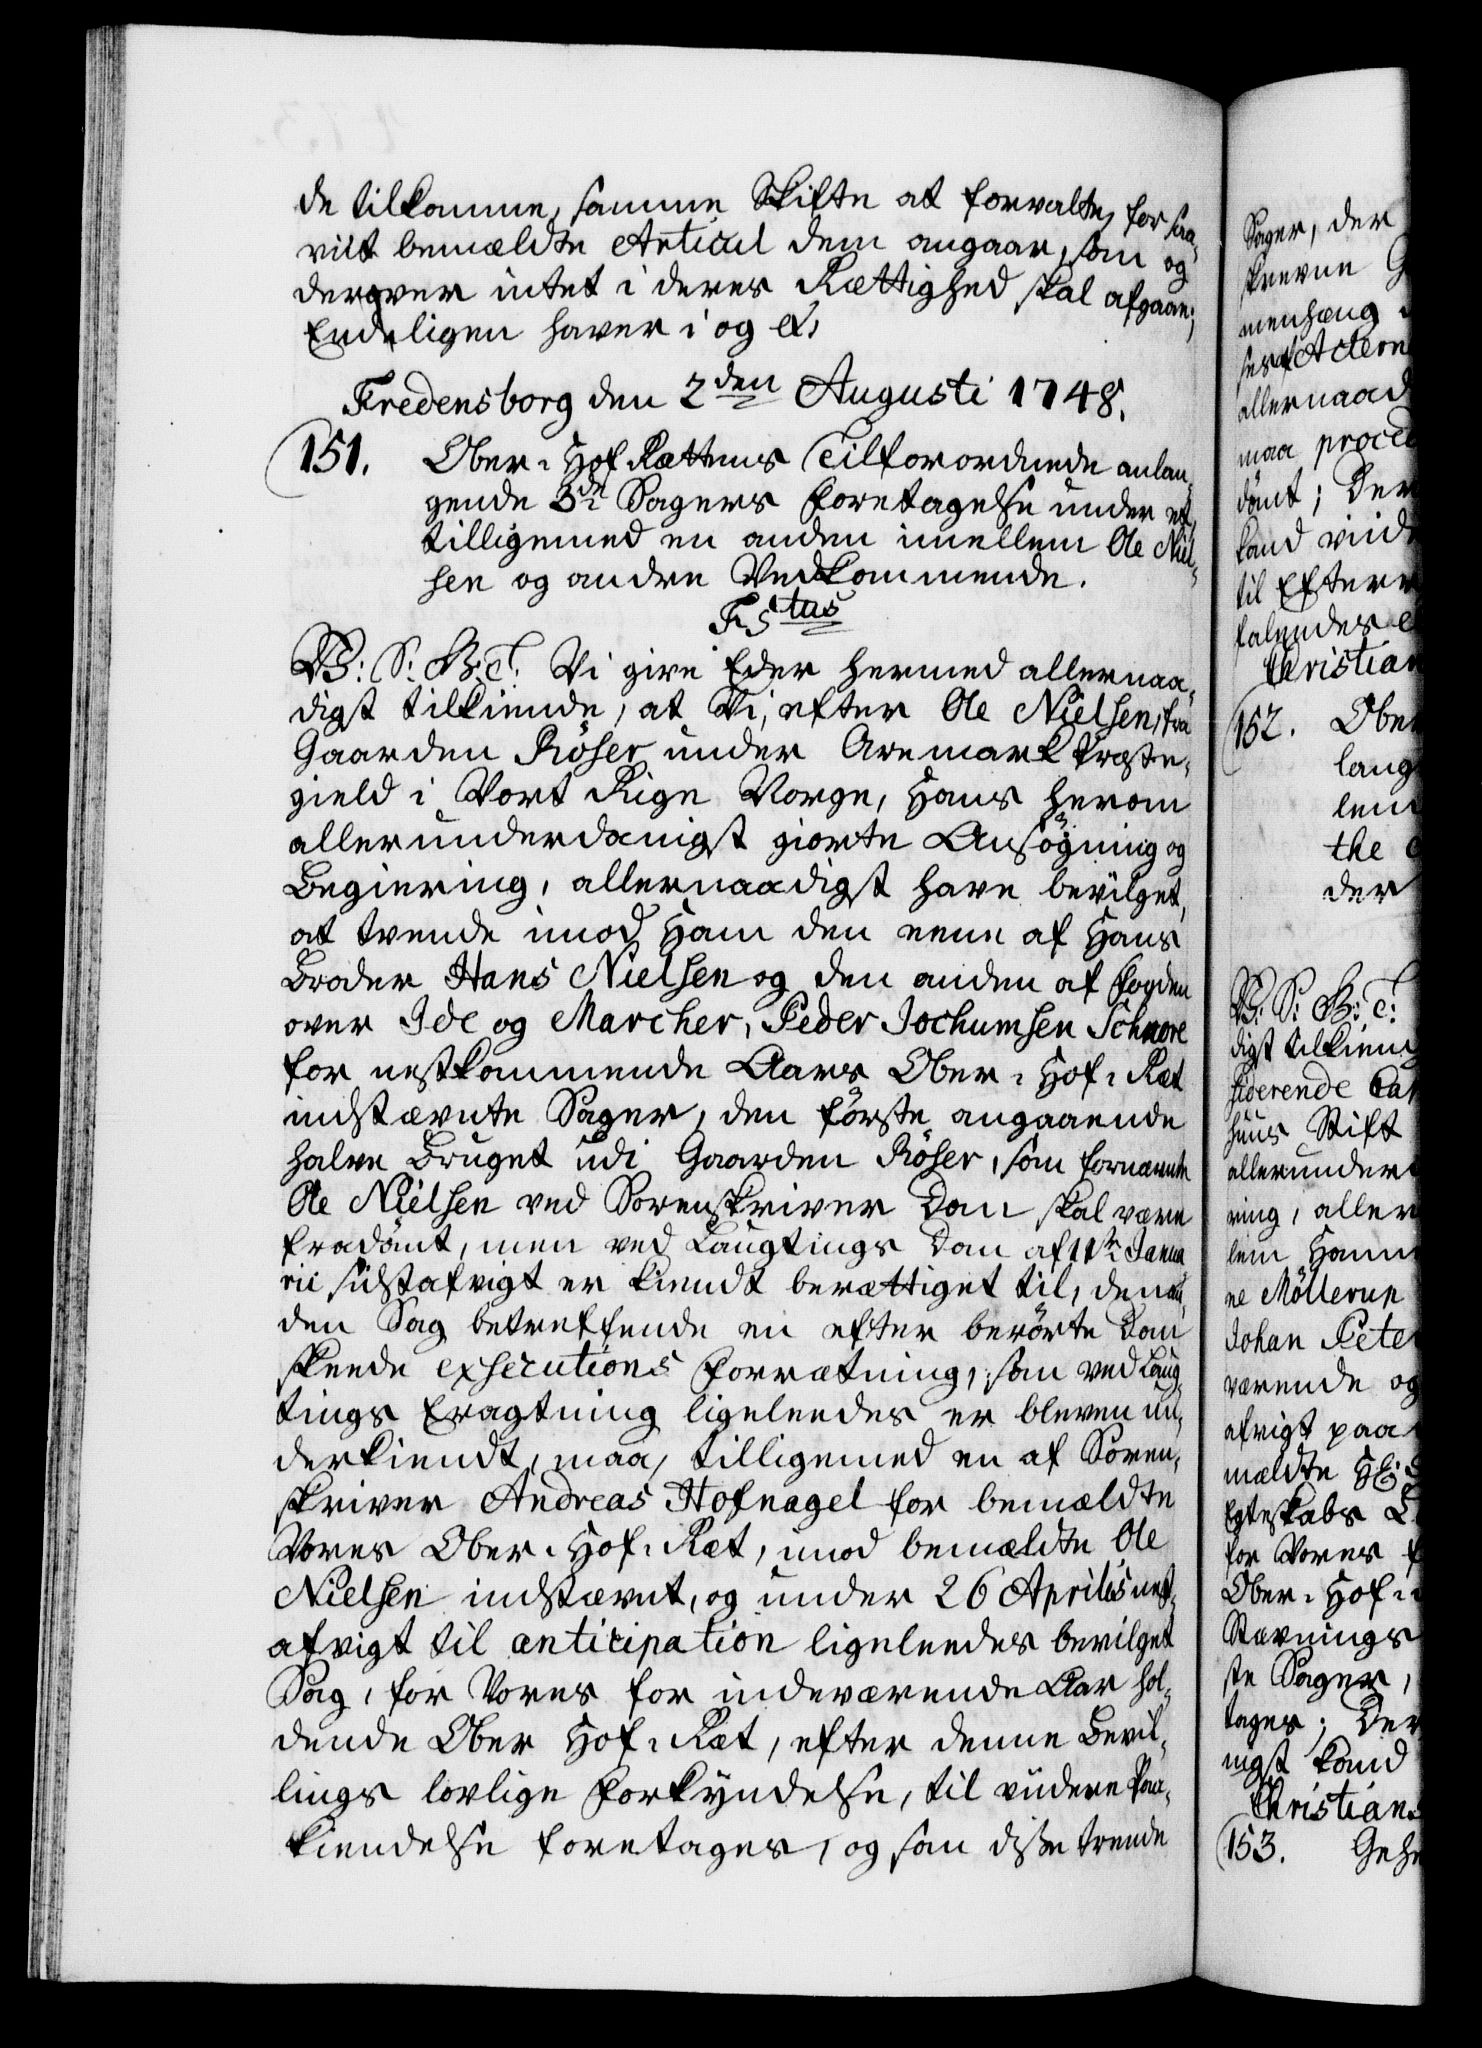 de tilkomme, samme Skifte at forvalte, for saa-
vilt bemældte Articul dem angaar, som og
derover intet i deres Rættighed skal afgaae;
Endeligen haver i og &c,
Fredensborg den 2den Augusti 1748.
151. Ober-Hof-Rettens Tilforordnede anlan-
gende 3de Sagers Foretagelse under et,
tilligemed en anden imellem Ole Niel-
sen og andre Vedkommende.
F5tus
V: S: G: T: Vi give Eder hermed allernaa-
digst tilkiende, at Vi, efter Ole Nielsen, fra
Gaarden Röser under Aremark Præste-
gield i Vort Rige Norge, Hans herom
allerunderdanigst giorte Ansögning og
Begiering, allernaadigst have bevilget,
at tvende imod Ham den eene af Hans
Broder Hans Nielsen og den anden af Fogden
over Ide og Marcher, Peder Jochumsen Schnore
for nestkommende Aars Ober-Hof-Ræt
indstævnte Sager, den förste angaaende
halve Bruget udi Gaarden Röser, som fornævnte
Ole Nielsen ved Sorenskriver Dom skal være
fradömt, men ved Laugtings Dom af 11te Janua
rii sidstafvigt er kiendt berættiget til, den an-
den Sag betreffende en efter berörte Dom
skeede exsecutions Forrætning, som ved Laug-
tings Eragtning ligeleedes er bleven un-
derkiendt, maa, tilligemed en af Soren-
skriver Andreas Hofnagel for bemældte
Vores Ober-Hof-Ræt, imod bemældte Ole
Nielsen indstævnt, og under 26 Aprilis nest-
afvigt til anticipation ligeleedes bevilget
Sag, for Vores for indeværende Aar hol-
dende Ober Hof-Ræt, efter denne Bevil-
lings lovlige Forkyndelse, til viidere Paa-
kiendelse foretages, og som disse trende
Sager, der
skrevne G
menhæng
allernaad
maa proced
dömt; Der
kand vind
til Efterr
falendes
Christian
152. Ober
lang
lem
the
der
V: S: G: T:
digst tilkiend
siderende Cam
huus Stift
allerunder
ring, aller
lem Hamm
ne Möllerup
Johan Peter
værende og
afvigt paa
mældte
Egteskabs
for Vores
Ober-Hof-
Stævnings
ste Sager,
tages; Der
ingst kand
Christian
153. Gehe